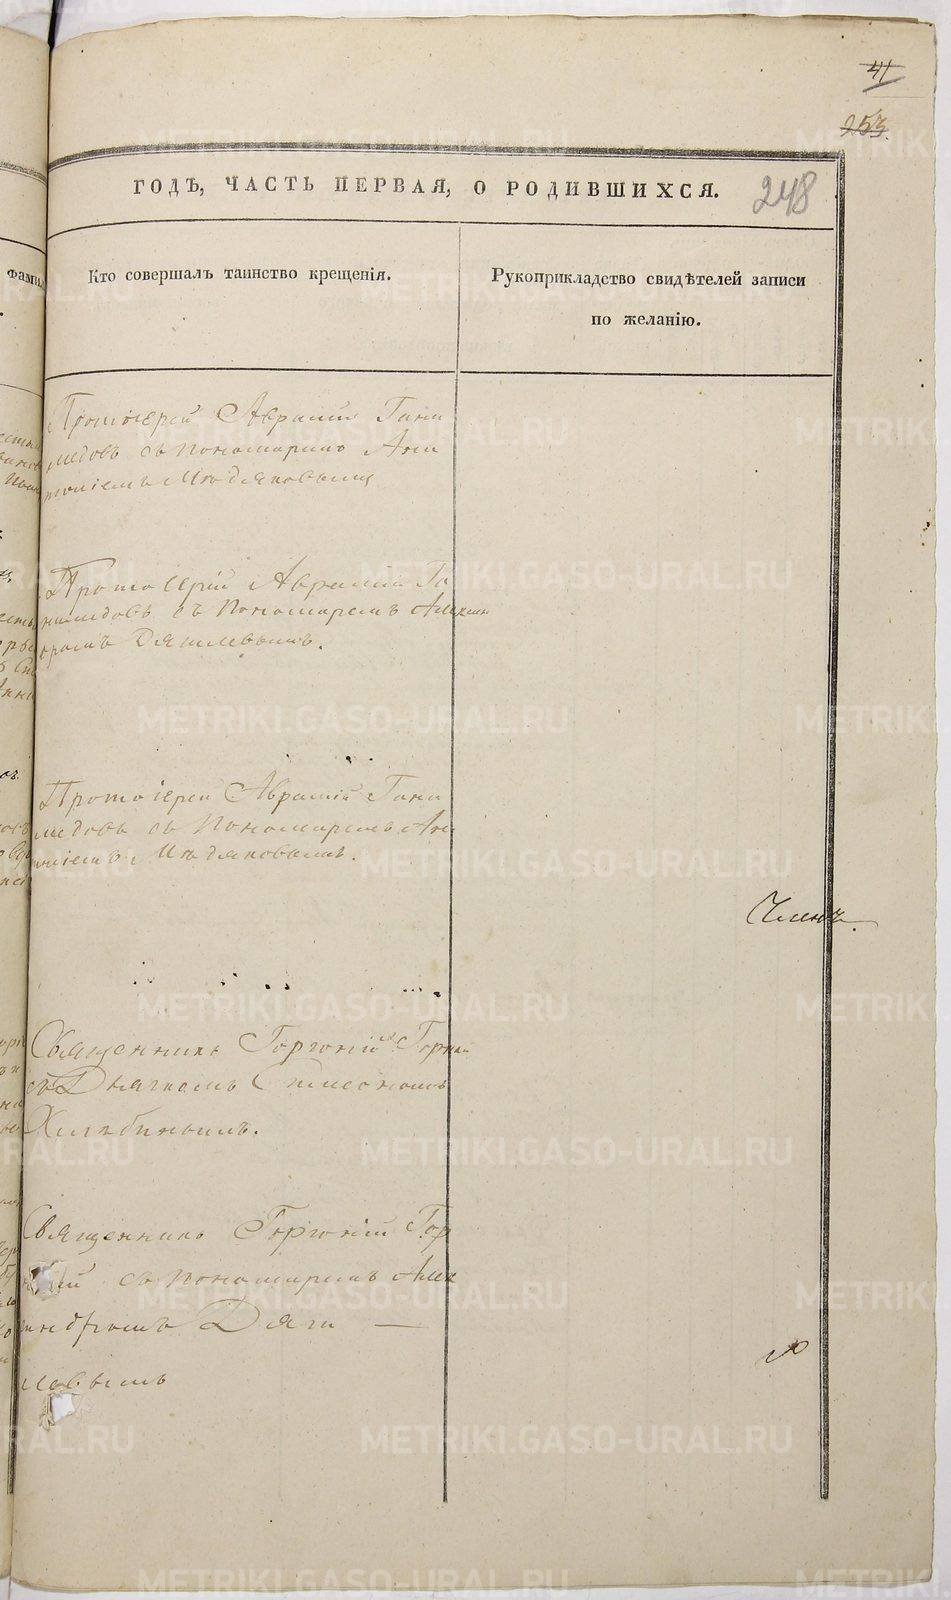 41
253.
ГОДЪ, ЧАСТЬ ПЕРВАЯ, О РОДИВШИХСЯ.
248
Кто совершалъ таинство крещенія.
Рукоприкладство свидѣтелей записи
по желанію.
Протоіерей Авраамій Гани
медовъ съ пономаремъ
Протоіерей Авраамій Га
нимедовъ съ Пономаремъ Алексан
дромъ Дягилевымъ.
Протоіерей Авраамій Гани
медовъ съ Пономаремъ
Членъ.
Священникъ Горгоній
съ Дьячкомъ Симеономъ
Хилябинымъ.
Священникъ Горгоній
съ пономаремъ Алек
сандромъ Дяги
левымъ
METRIKI.GASO-URAL.RU